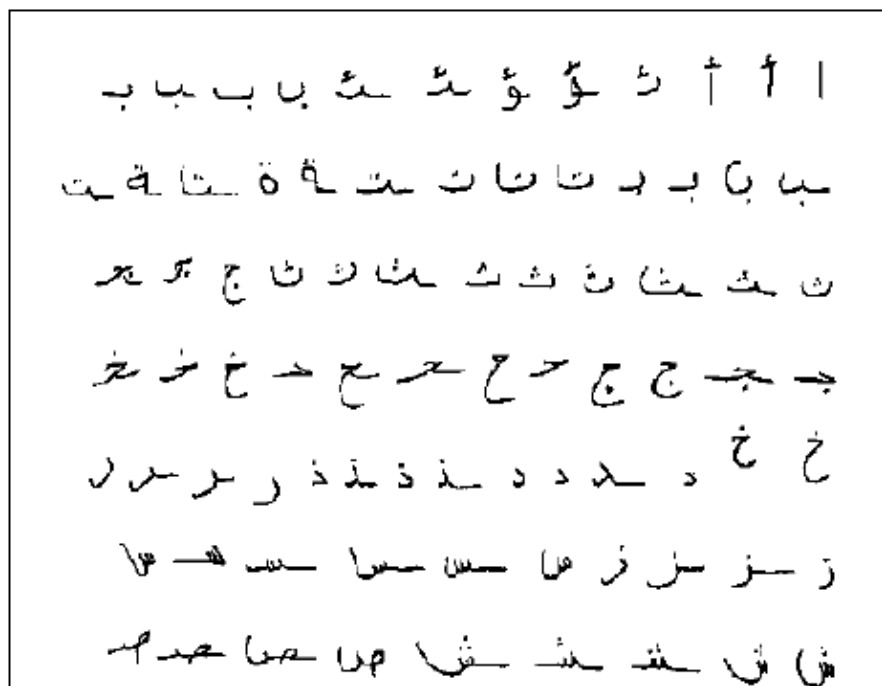 ا أ أ ئ ؤ ؤ ئ ئ ب ب بـ بـ
ب ب بـ بـ ت ت ت ت ة ة ت ة ت
ث ث ث ث ث ث ث ث ث ج ج ج
جـ ج ج ج ح ح ح ح ح خ خ خ
خ خ د د د د ذ ذ ذ ذ ر ر ر ر
ز ز ز ز س س س س س س
ش ش ش ش ش ص ص ص ص